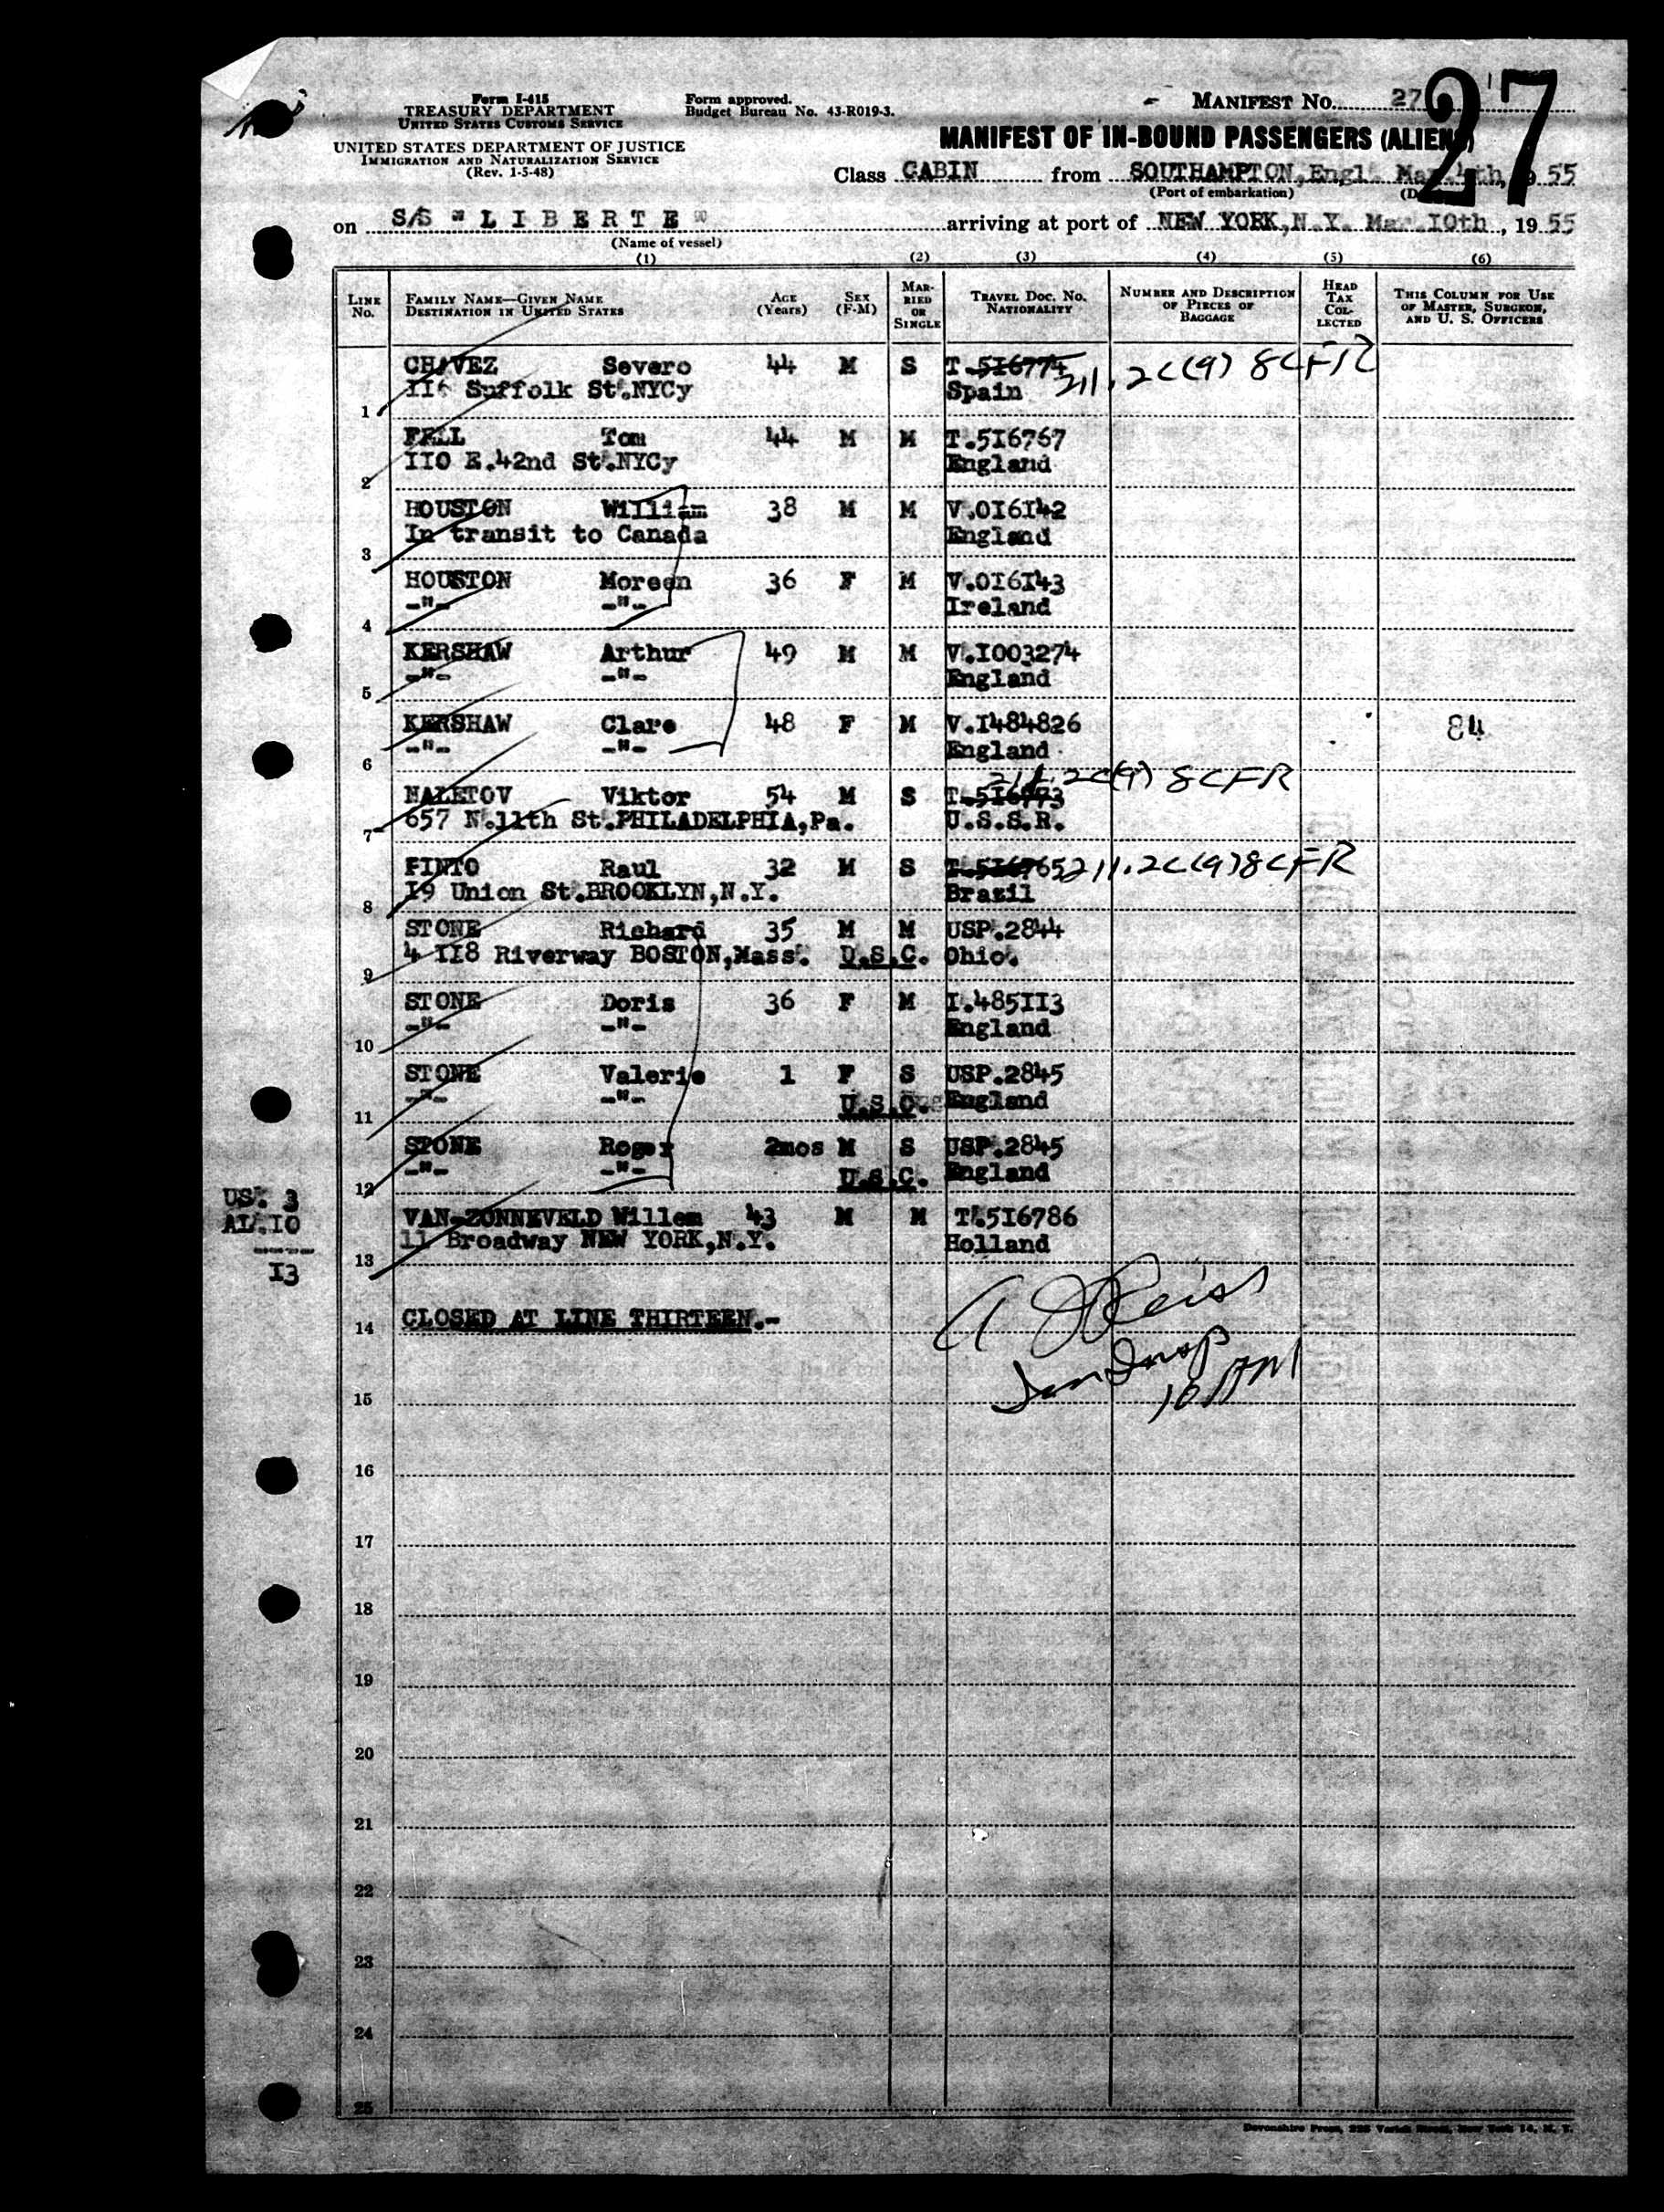 Form I-415
TREASURY DEPARTMENT
UNITED STATES CUSTOMS SERVICE
UNITED STATES DEPARTMENT OF JUSTICE
IMMIGRATION AND NATURALIZATION SERVICE
(Rev. 1-5-48)
Form approved.
Budget Bureau No. 43-R019-3.
MANIFEST No. 27
27
MANIFEST OF IN-BOUND PASSENGERS (ALIENS)
Class CABIN from SOUTHAMPTON,Engl. Mar.4th, 1955
(Port of embarkation)
on S/S "LIBERTE" arriving at port of NEW YORK,N.Y. Mar.10th, 19 55
(Name of vessel)
(1) (2) (3) (4) (5) (6)
LINE No. FAMILY NAME—GIVEN NAME DESTINATION IN UNITED STATES AGE (Years) SEX (F-M) MARRIED OR SINGLE TRAVEL DOC. NO. NATIONALITY NUMBER AND DESCRIPTION OF PIECES OF BAGGAGE HEAD TAX COLLECTED THIS COLUMN FOR USE OF MASTER, SURGEON, AND U. S. OFFICERS
CHAVEZ Severo 44 M S T.516774 211.2C(9) 8CFR
1 116 Suffolk St.NYCy Spain
FELL Tom 44 M M T.516767
2 110 E.42nd St.NYCy England
HOUSTON William 38 M M V.016142
3 In transit to Canada England
HOUSTON Moreen 36 F M V.016143
4 -"- -"- Ireland
KERSHAW Arthur 49 M M V.1003274
5 -"- -"- England
KERSHAW Clare 48 F M V.1484826 84
6 -"- -"- England
211.2C(9) 8CFR
NALETOV Viktor 54 M S T.516773
7 657 N.11th St.PHILADELPHIA,Pa. U.S.S.R.
PINTO Raul 32 M S T.516765 211.2C(9)8CFR
8 19 Union St.BROOKLYN,N.Y. Brazil
STONE Richard 35 M M USP.2844
9 4 118 Riverway BOSTON,Mass. U.S.C. Ohio.
STONE Doris 36 F M I.485113
10 -"- -"- England
STONE Valerie 1 F S USP.2845
11 -"- -"- U.S.C. England
STONE Roger 2mos M S USP.2845
12 -"- -"- U.S.C. England
US. 3
AL.10
-----
13
VAN-ZONNEVELD Willem 43 M M T.516786
13 11 Broadway NEW YORK,N.Y. Holland
14 CLOSED AT LINE THIRTEEN.-
A J Reiss
Imm Insp
15
16
17
18
19
20
21
22
23
24
25
Devonshire Press, 225 Varick Street, New York 14, N. Y.